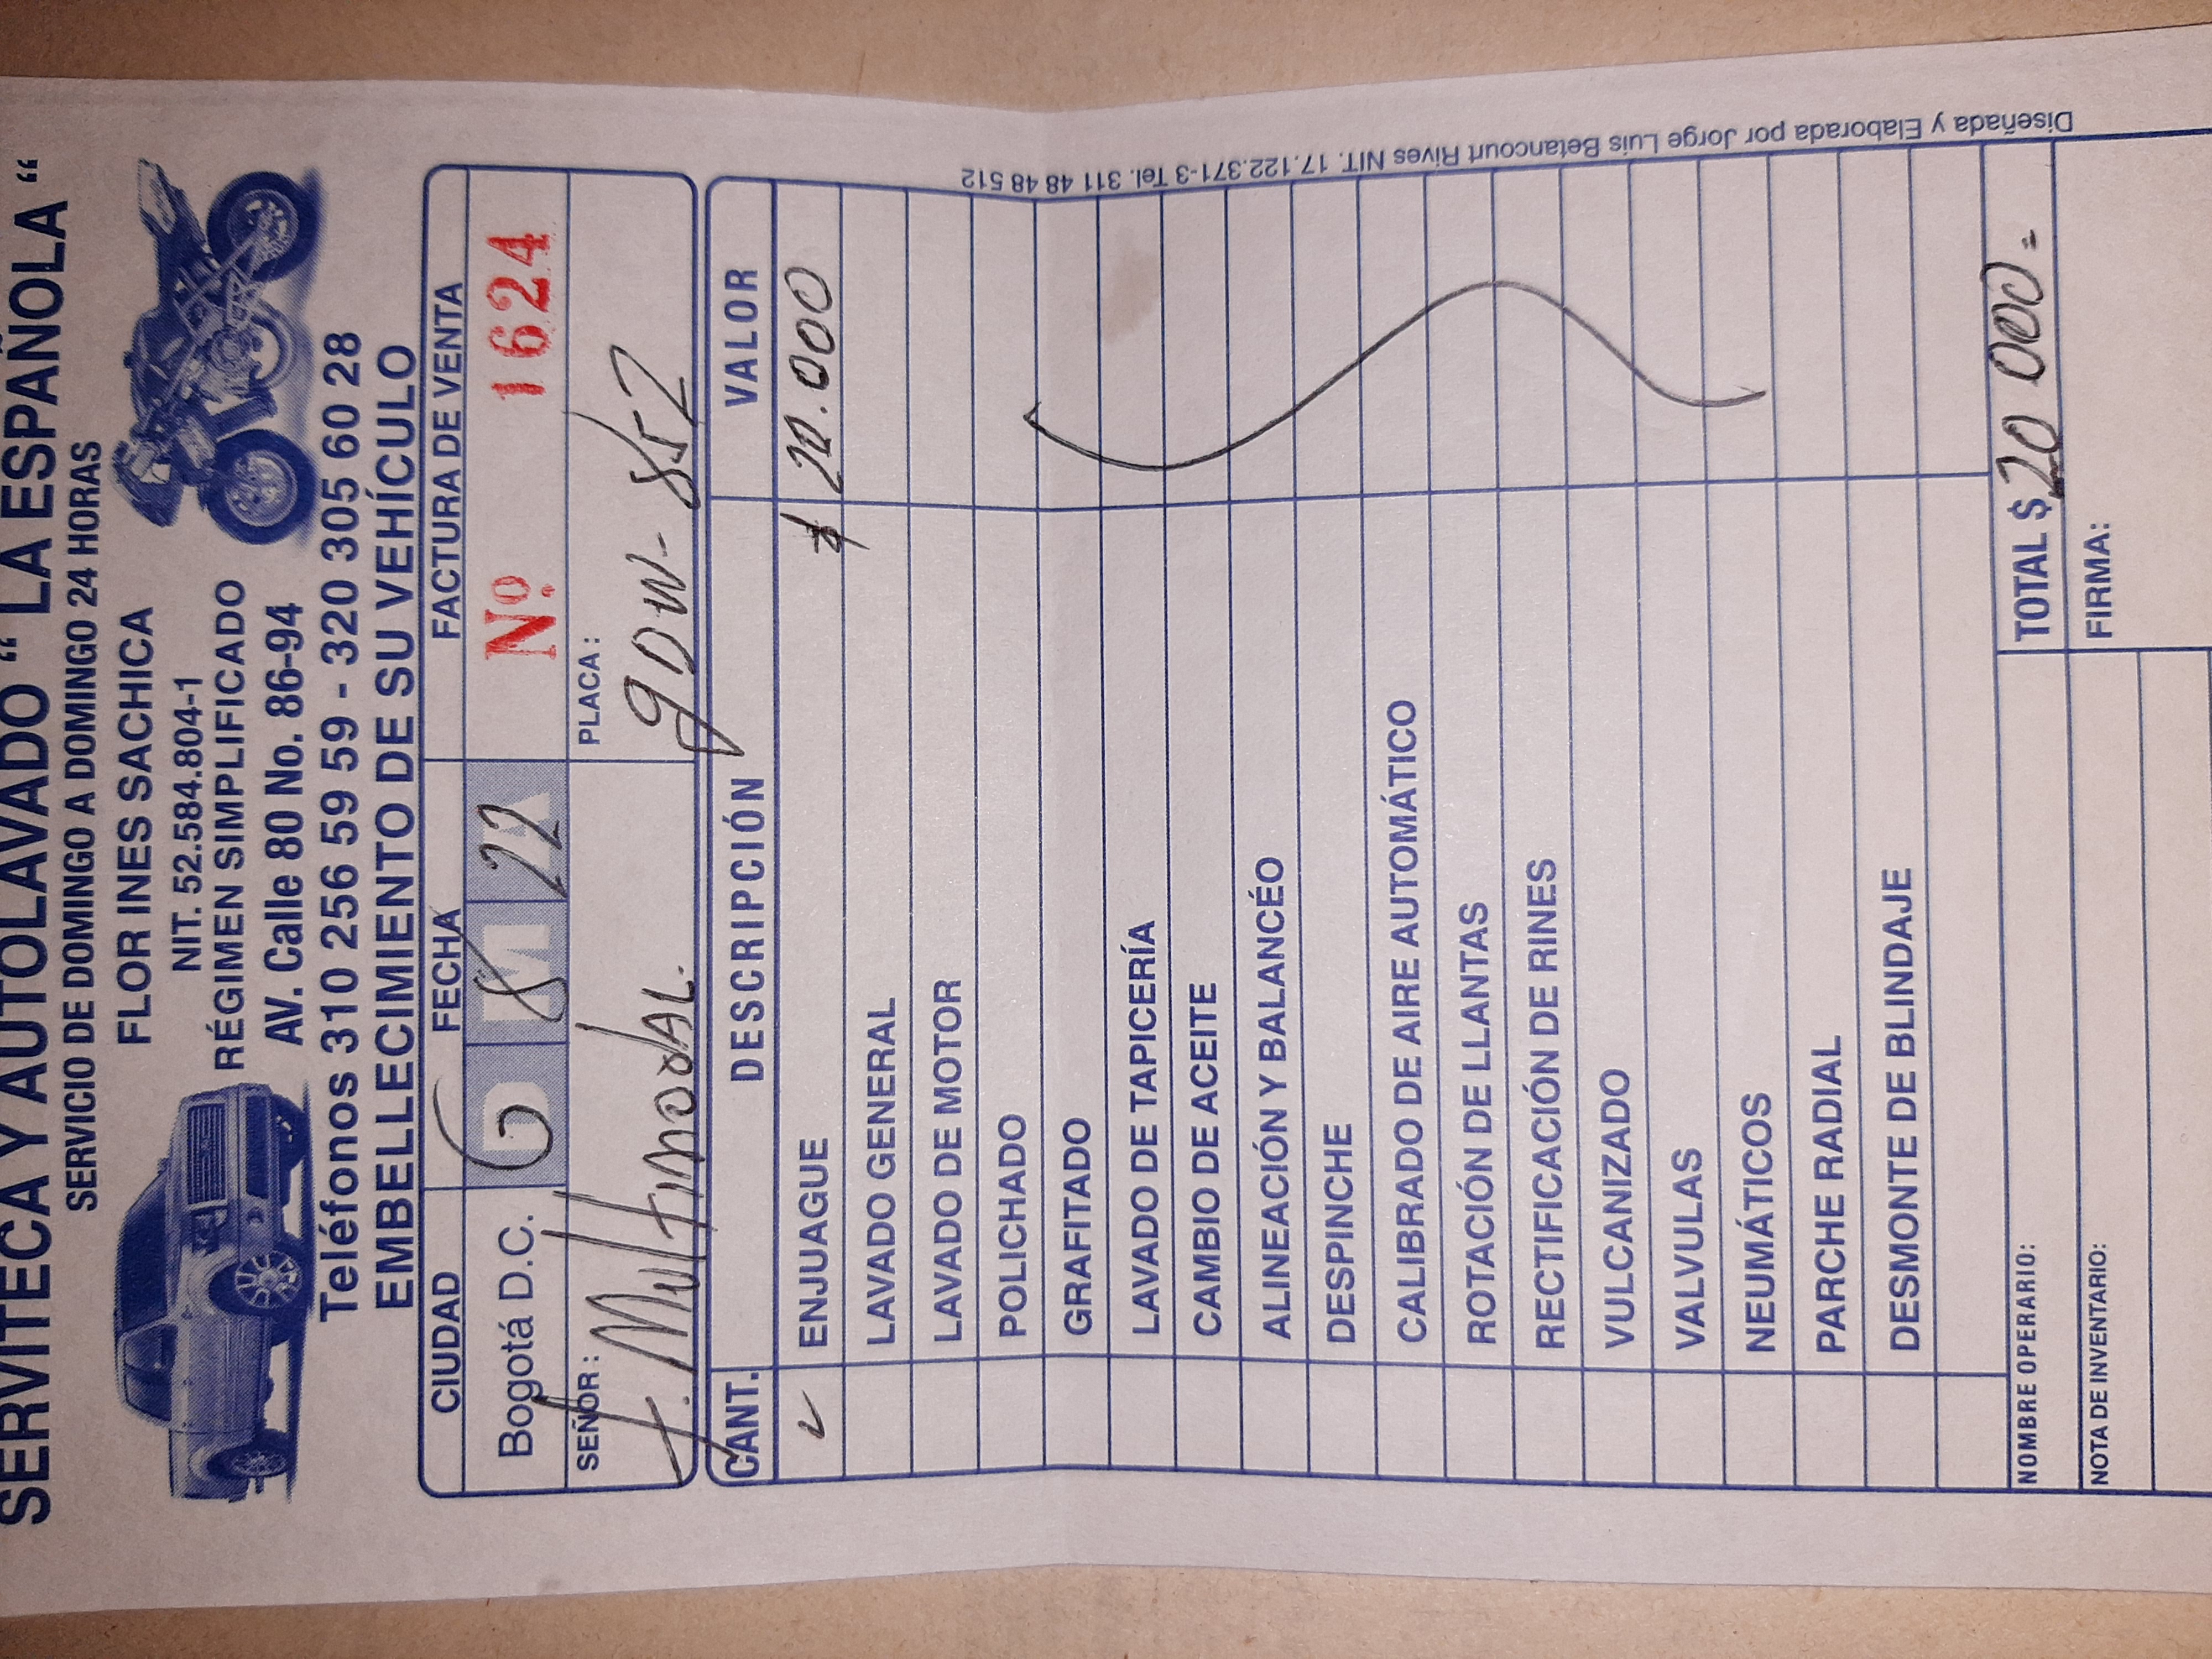 SERVITECA Y AUTOLAVADO “ LA ESPAÑOLA “
SERVICIO DE DOMINGO A DOMINGO 24 HORAS
FLOR INES SACHICA
NIT. 52.584.804-1
RÉGIMEN SIMPLIFICADO
AV. Calle 80 No. 86-94
Teléfonos 310 256 59 59 - 320 305 60 28
EMBELLECIMIENTO DE SU VEHÍCULO
CIUDAD FECHA FACTURA DE VENTA
Bogotá D.C. D 6 M 8 A 22 Nº 1624
SEÑOR: T. MultimodAL. PLACA: GDW-852
CANT. DESCRIPCIÓN VALOR
ENJUAGUE $ 20.000
LAVADO GENERAL
LAVADO DE MOTOR
POLICHADO
GRAFITADO
LAVADO DE TAPICERÍA
CAMBIO DE ACEITE
ALINEACIÓN Y BALANCÉO
DESPINCHE
CALIBRADO DE AIRE AUTOMÁTICO
ROTACIÓN DE LLANTAS
RECTIFICACIÓN DE RINES
VULCANIZADO
VALVULAS
NEUMÁTICOS
PARCHE RADIAL
DESMONTE DE BLINDAJE
NOMBRE OPERARIO: TOTAL $ 20 000.=
NOTA DE INVENTARIO: FIRMA:
Diseñada y Elaborada por Jorge Luis Betancourt Rives NIT. 17.122.371-3 Tel. 311 48 48 512